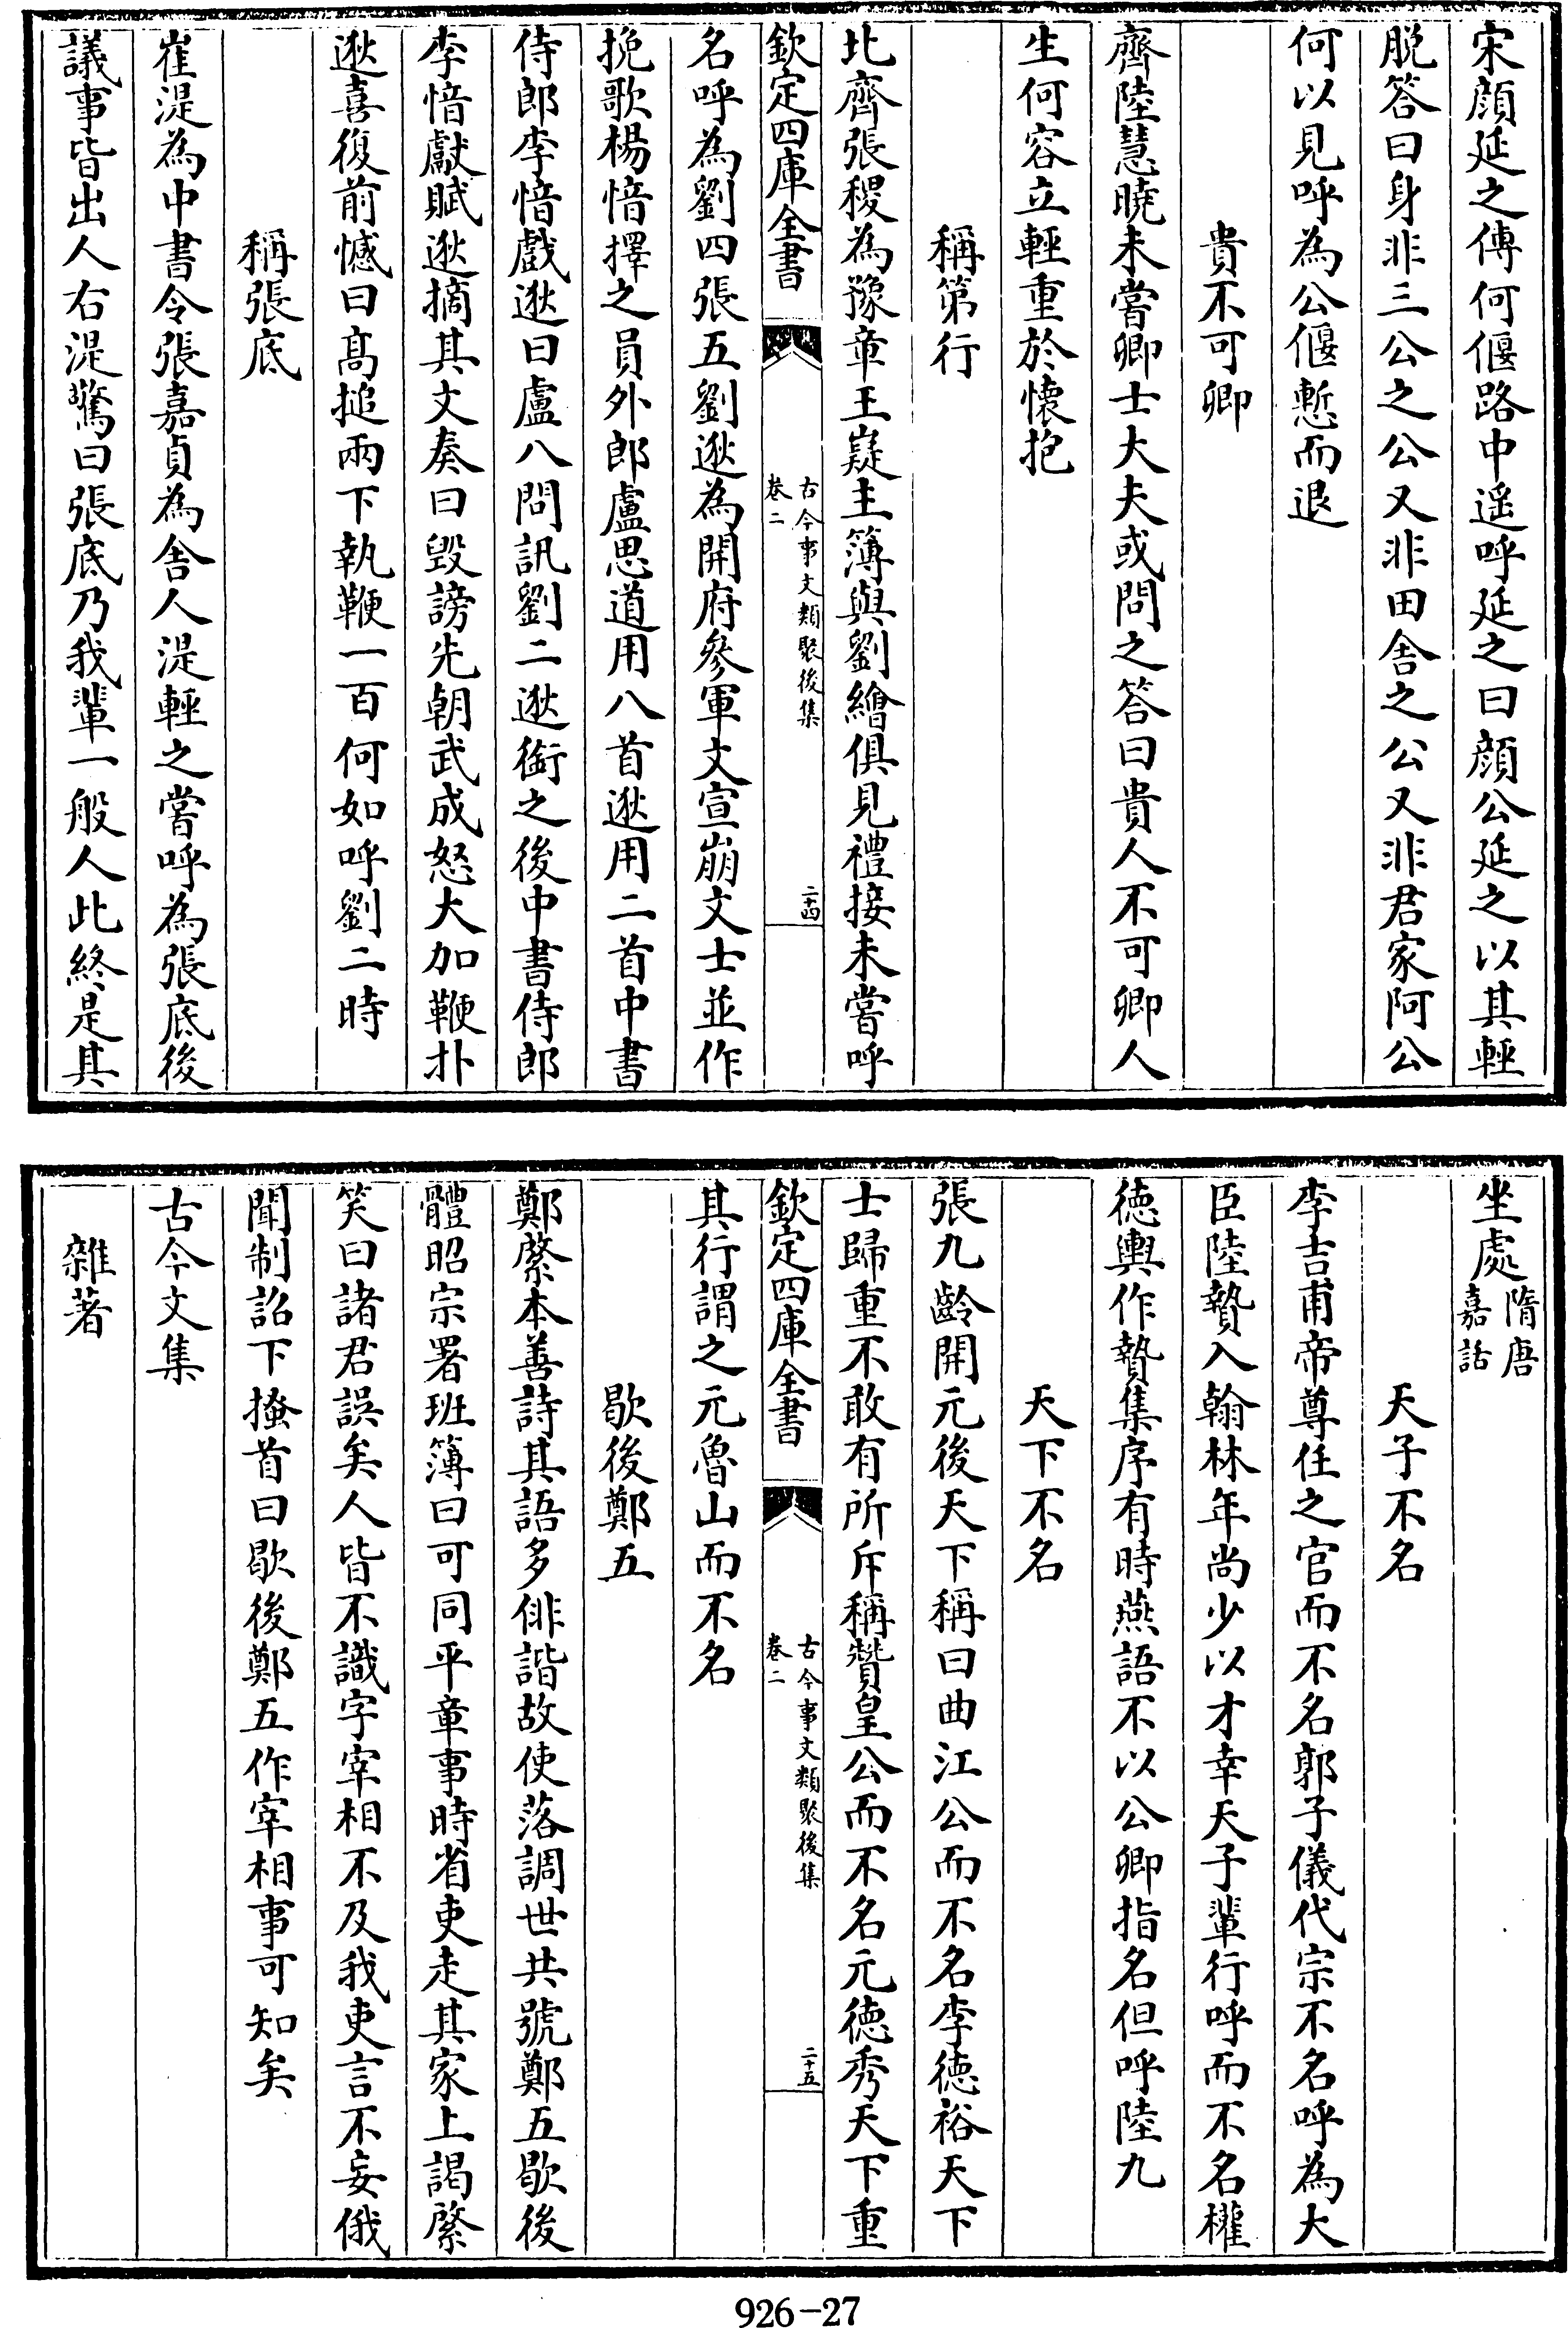 宋顔延之傳何偃路中遥呼延之曰顔公延之以其輕
脱答曰身非三公之公又非田舍之公又非君家阿公
何以見呼為公偃慙而退
貴不可卿
齊陸慧曉未嘗卿士大夫或問之答曰貴人不可卿人
生何容立輕重於懷抱
稱第行
北齊張稷為豫章王嶷主簿與劉繪俱見禮接未嘗呼
欽定四庫全書
古今事文類聚後集
卷二
二十四
名呼為劉四張五劉逖為開府參軍文宣崩文士並作
挽歌楊愔擇之員外郎盧思道用八首逖用二首中書
侍郎李愔戲逖曰盧八問訊劉二逖銜之後中書侍郎
李愔獻賦逖摘其文奏曰毀謗先朝武成怒大加鞭扑
逖喜復前憾曰髙搥兩下執鞭一百何如呼劉二時
稱張底
崔湜為中書令張嘉貞為舍人湜輕之嘗呼為張底後
議事皆出人右湜驚曰張底乃我輩一般人此終是其
坐處
隋唐
嘉話
天子不名
李吉甫帝尊任之官而不名郭子儀代宗不名呼為大
臣陸贄入翰林年尚少以才幸天子輩行呼而不名權
德輿作贄集序有時燕語不以公卿指名但呼陸九
天下不名
張九齡開元後天下稱曰曲江公而不名李德裕天下
士歸重不敢有所斥稱贊皇公而不名元德秀天下重
欽定四庫全書
古今事文類聚後集
卷二
二十五
其行謂之元魯山而不名
歇後鄭五
鄭綮本善詩其語多俳諧故使落調世共號鄭五歇後
體昭宗署班簿曰可同平章事時省吏走其家上謁綮
笑曰諸君誤矣人皆不識字宰相不及我吏言不妄俄
聞制詔下搔首曰歇後鄭五作宰相事可知矣
古今文集
雜著
926-27